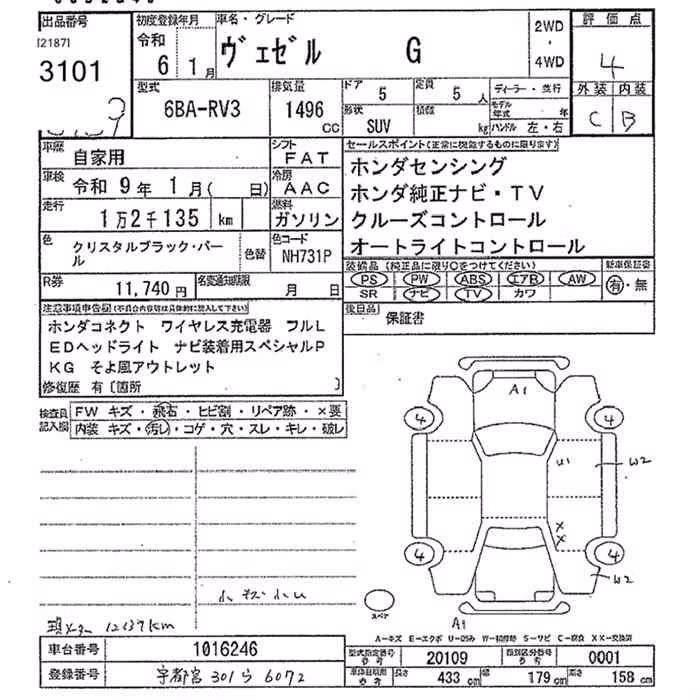 出品番号
[2187]
3101
初度登録年月
令和 6年 1月
車名・グレード
ヴェゼル G
2WD
・
4WD
評価点
4
外装 内装
C B
型式
6BA-RV3
排気量
1496 CC
ドア 5
定員 5人
形状 SUV
積載 kg
ディーラー・並行
モデル年式 年
ハンドル 左・右
車歴 自家用
シフト FAT
車検 令和 9年 1月( 日)
冷房 AAC
走行 1万2千135 km
燃料 ガソリン
色 クリスタルブラック・パール
色替
色コード NH731P
R券 11,740円
名変通知期限 月 日
セールスポイント(正常に機能するものに限ります)
ホンダセンシング
ホンダ純正ナビ・TV
クルーズコントロール
オートライトコントロール
装備品(純正品に限り○をつけてください)
PS PW ABS エアB AW
SR ナビ TV カワ
新車保証書
有・無
後日品 保証書
注意事項申告欄(不具合内容等は具体的に記入して下さい)
ホンダコネクト ワイヤレス充電器 フルL
EDヘッドライト ナビ装着用スペシャルP
KG そよ風アウトレット
修復歴 有[箇所 ]
検査員記入欄
FW キズ・飛石・ヒビ割・リペア跡・×要
内装 キズ・汚レ・コゲ・穴・スレ・キレ・破レ
A1
4 4
U1 W2
X
X
4 4
W2
スペア
A1
現メーター 12137km
A-キズ E-エクボ U-凹み W-補修跡 S-サビ C-腐食 XX-交換済
車台番号 1016246
登録番号 宇都宮 301 ら 6072
型式指定番号 20109
類別区分番号 0001
長さ 433cm 幅 179cm 高さ 158cm